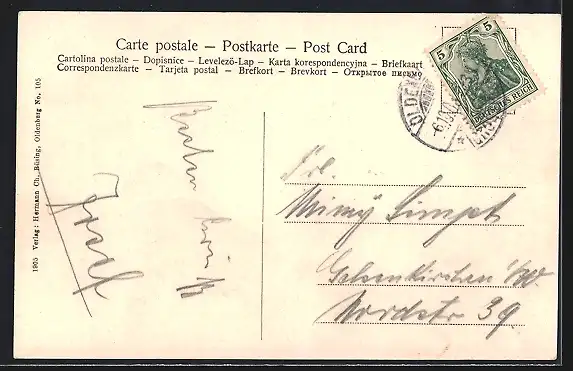 Carte postale – Postkarte – Post Card
Cartolina postale – Dopisnice – Levelező-Lap – Karta korespondencyjna – Briefkaart
Correspondenzkarte – Tarjeta postal – Brefkort – Brevkort – Открытое письмо
5 5
DEUTSCHES REICH
OLDENBURG
1905 Verlag: Hermann Ch. Büsing, Oldenberg No. 105
Josef
Frl.
Mimy Simpel
Gelsenkirchen i/W.
Nordstr 39